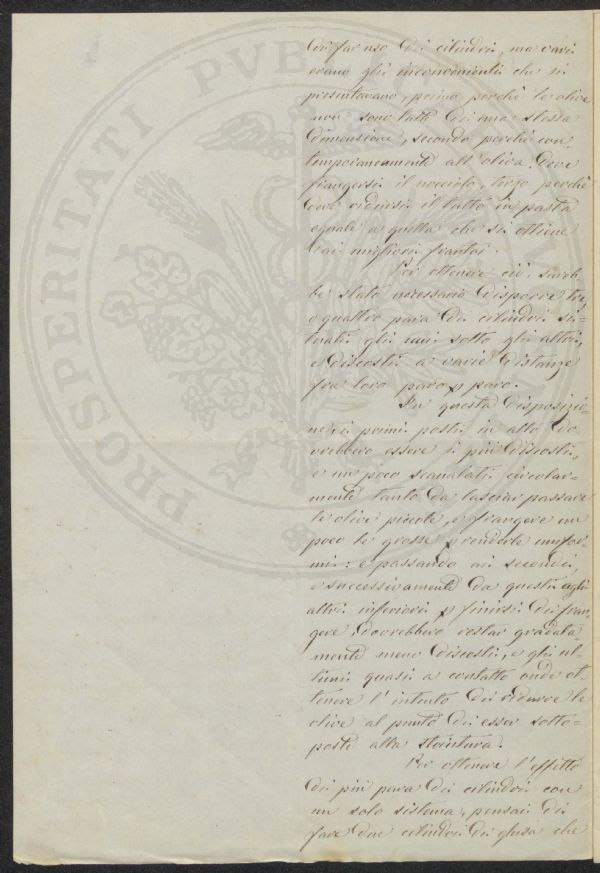 PROSPERITATI PVB
di far uso dei cilindri, ma varii
erano gli inconvenienti che si
presentavano, primo perchè le olive
non sono tutte di una stessa
dimensione, secondo perchè con-
temporaneamente all'oliva deve
frangersi il nocciolo, terzo perchè
deve ridursi il tutto in pasta
eguale a quella che si ottiene
dai migliori frantoi.
Per ottenere ciò, sareb-
be stato necessario disporre tre,
o quattro para di cilindri si-
tuati gli uni sotto gli altri,
e discosti a varie distanze
fra loro paro p paro.
In questa disposizio-
ne i primi posti in alto do-
vrebbero essere i più discosti,
e un poco scanalati circolar-
mente tanto da lasciar passare
le olive piccole, e frangere un
poco le grosse p renderle unifor-
mi: e passando ai secondi,
e successivamente da questi agli
altri inferiori p finirsi di fran-
gere, dovrebbero restar gradata-
mente meno discosti, e gli ul-
timi quasi a contatto onde ot-
tenere l'intento di ridurre le
olive al punto di esser sotto-
poste alla strintura.
Per ottenere l'effetto
di più para di cilindri con
un solo sistema, pensai di
fare due cilindri di ghisa che